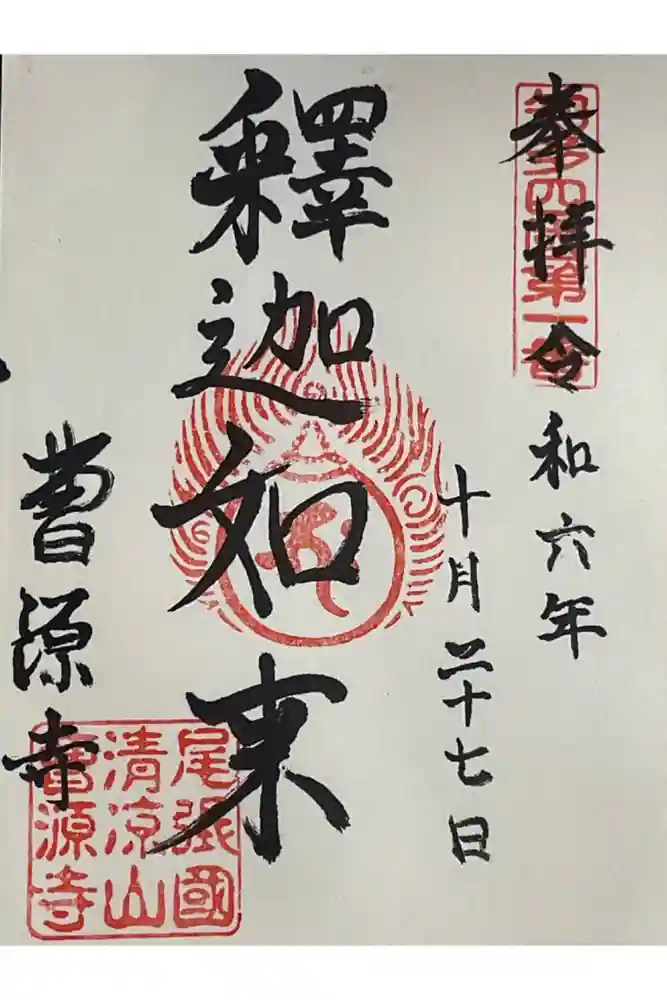 奉拝
令和六年
十月二十七日
知多四国第一番
釋迦如来
曹源寺
尾張國
清涼山
曹源寺